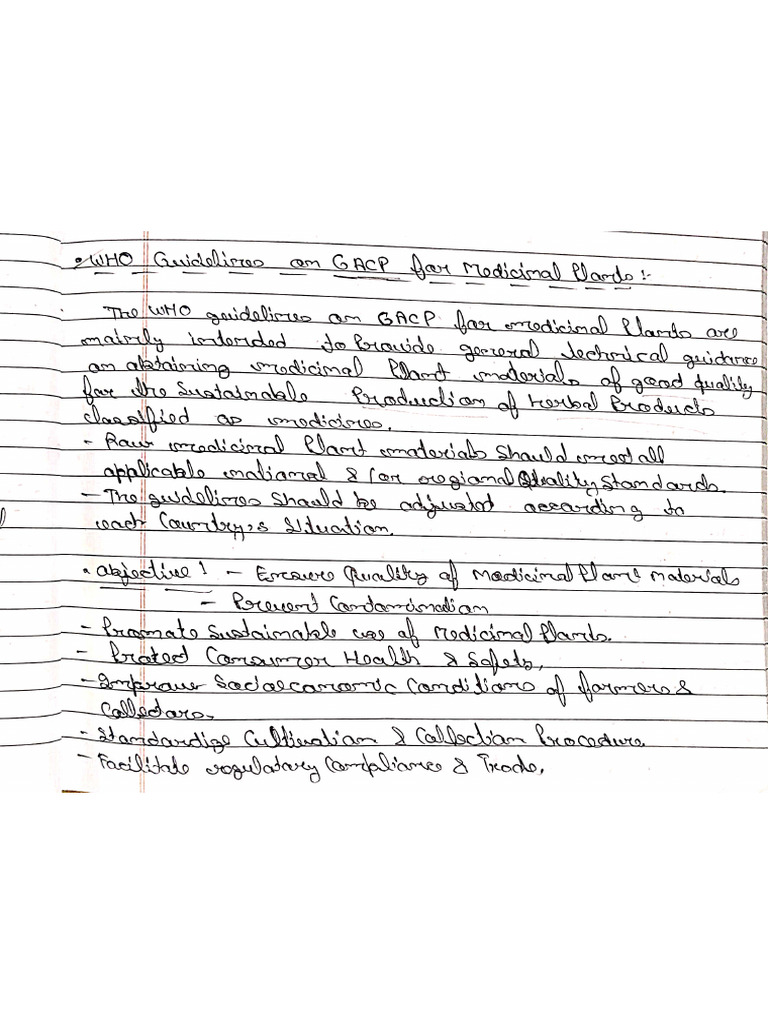 • WHO Guidelines on GACP for Medicinal Plants:-
The WHO guidelines on GACP for medicinal Plants are
mainly intended to Provide general technical guidance
on obtaining medicinal Plant materials of good quality
for the Sustainable Production of Herbal Products
classified as medicines.
- Raw medicinal Plant materials Should meet all
applicable national & /or regional Quality Standards.
- The guidelines Should be adjusted according to
each Country's Situation.
• Objective : - Ensure Quality of Medicinal Plant Materials
- Prevent Contamination
- Promote Sustainable use of Medicinal Plants.
- Protect Consumer Health & Safety,
- Improve Socioeconomic Conditions of farmers &
Collectors.
- Standardize Cultivation & Collection Procedure.
- Facilitate regulatory Compliance & Trade.